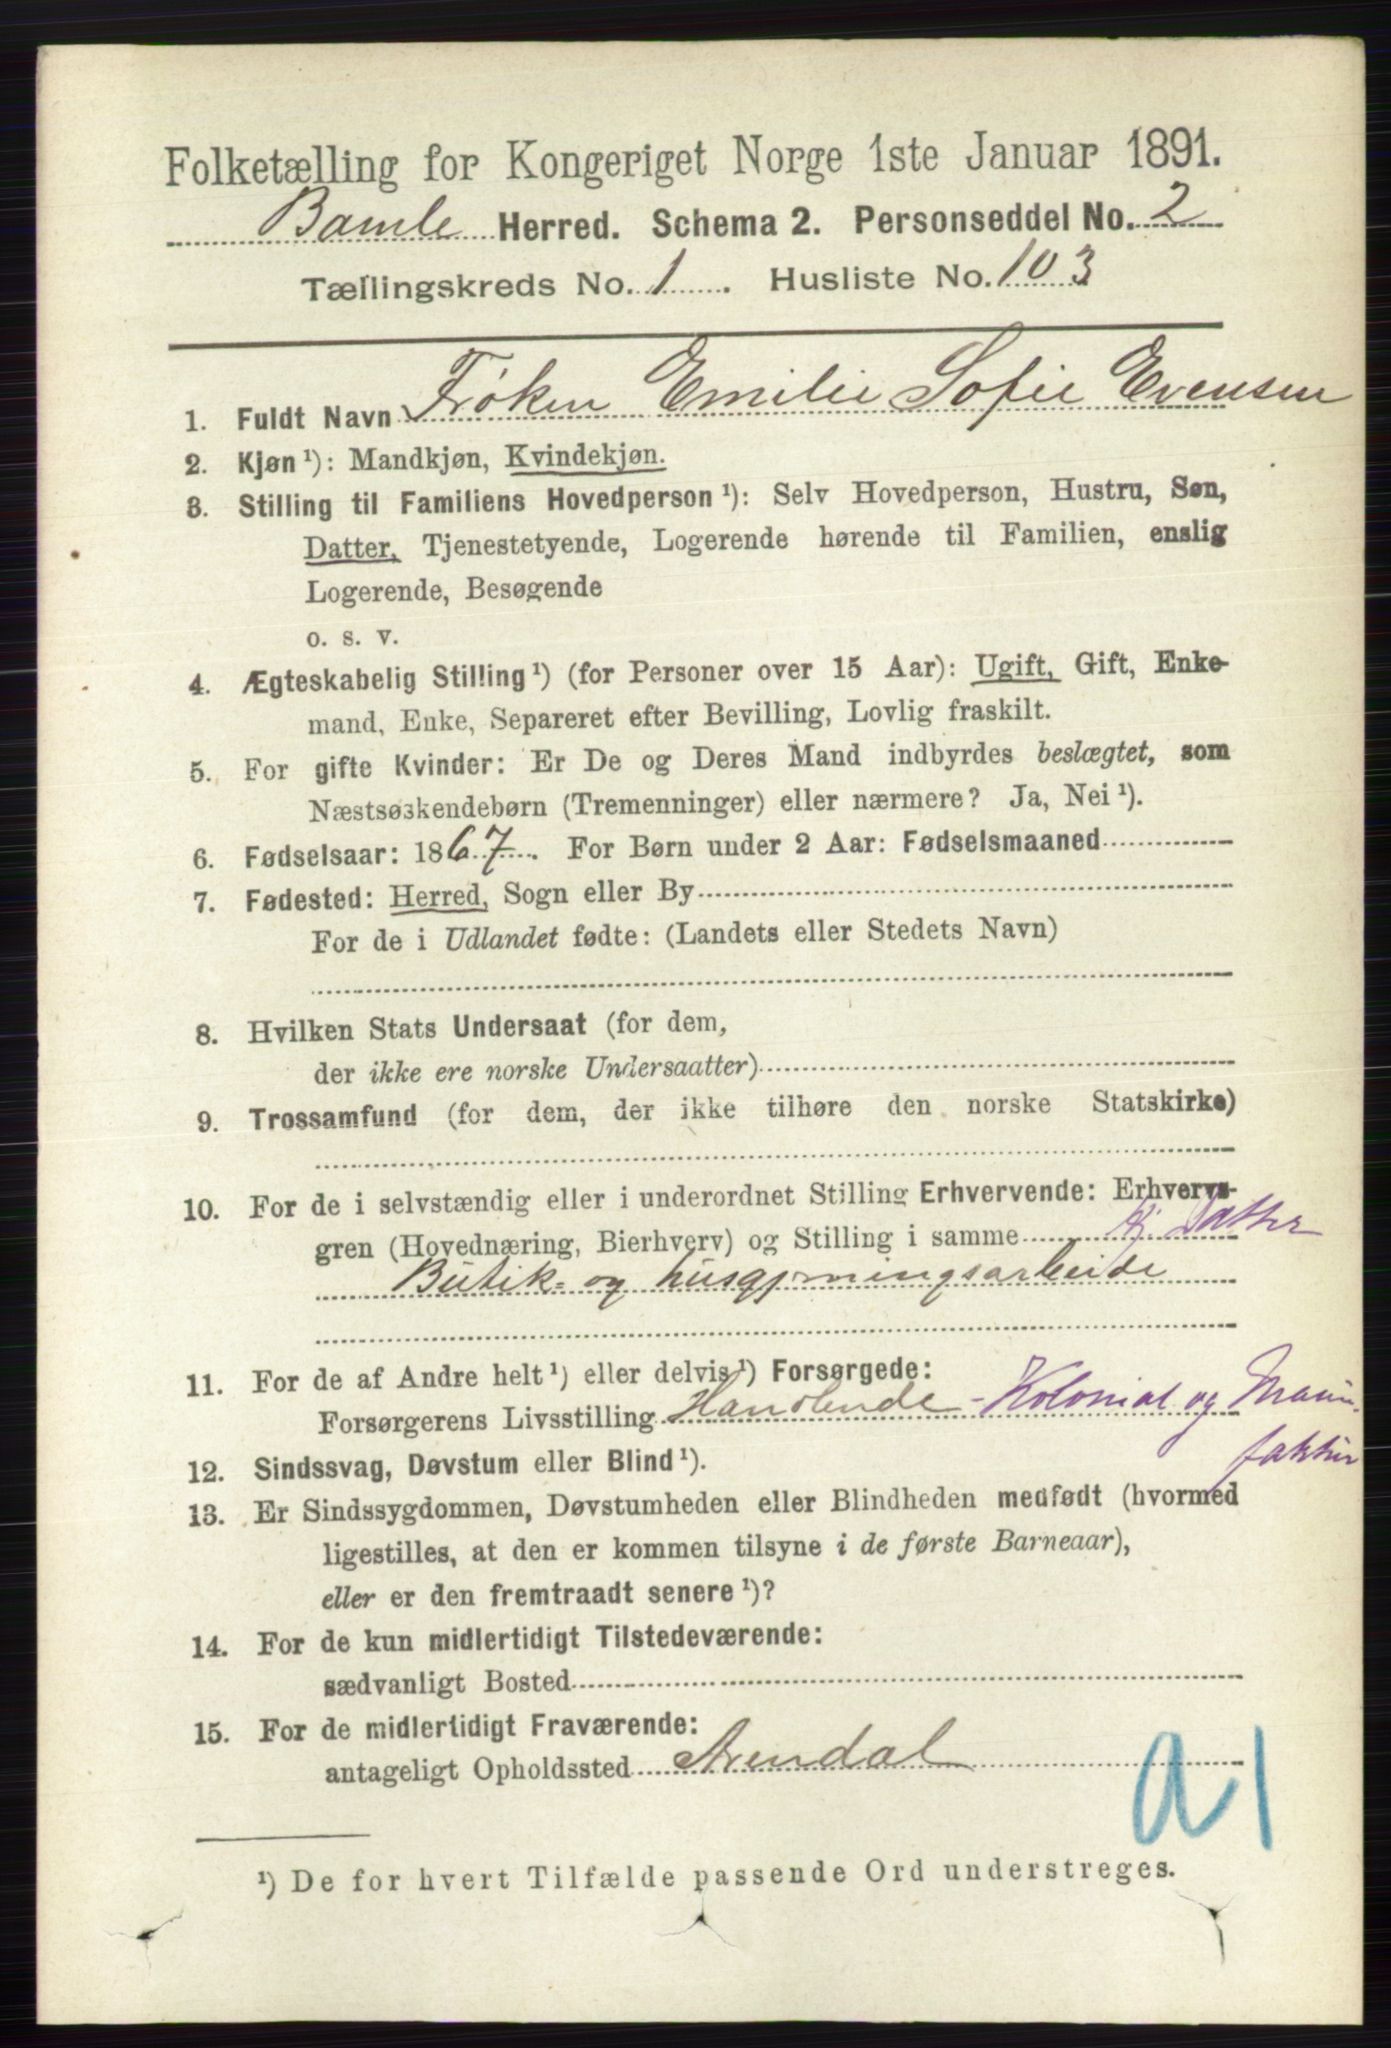 Folketælling for Kongeriget Norge 1ste Januar 1891.
Bamle Herred. Schema 2. Personseddel No. 2
Tællingskreds No. 1. Husliste No. 103
1. Fuldt Navn Frøken Emilie Sofie Evensen
2. Kjøn ¹): Mandkjøn, Kvindekjøn.
3. Stilling til Familiens Hovedperson ¹): Selv Hovedperson, Hustru, Søn,
Datter, Tjenestetyende, Logerende hørende til Familien, enslig
Logerende, Besøgende
o. s. v.
4. Ægteskabelig Stilling ¹) (for Personer over 15 Aar): Ugift, Gift, Enke-
mand, Enke, Separeret efter Bevilling, Lovlig fraskilt.
5. For gifte Kvinder: Er De og Deres Mand indbyrdes beslægtet, som
Næstsøskendebørn (Tremenninger) eller nærmere? Ja, Nei ¹).
6. Fødselsaar: 1867. For Børn under 2 Aar: Fødselsmaaned
7. Fødested: Herred, Sogn eller By
For de i Udlandet fødte: (Landets eller Stedets Navn)
8. Hvilken Stats Undersaat (for dem,
der ikke ere norske Undersaatter)
9. Trossamfund (for dem, der ikke tilhøre den norske Statskirke)
10. For de i selvstændig eller i underordnet Stilling Erhvervende: Erhvervs-
gren (Hovednæring, Bierhverv) og Stilling i samme hj. Datter
Butik- og husgjerningsarbeide
11. For de af Andre helt ¹) eller delvis ¹) Forsørgede:
Forsørgerens Livsstilling Handlende - Kolonial og Manu-
faktur
12. Sindssvag, Døvstum eller Blind ¹).
13. Er Sindssygdommen, Døvstumheden eller Blindheden medfødt (hvormed
ligestilles, at den er kommen tilsyne i de første Barneaar),
eller er den fremtraadt senere ¹)?
14. For de kun midlertidigt Tilstedeværende:
sædvanligt Bosted
15. For de midlertidigt Fraværende:
antageligt Opholdssted Arendal
a1
¹) De for hvert Tilfælde passende Ord understreges.